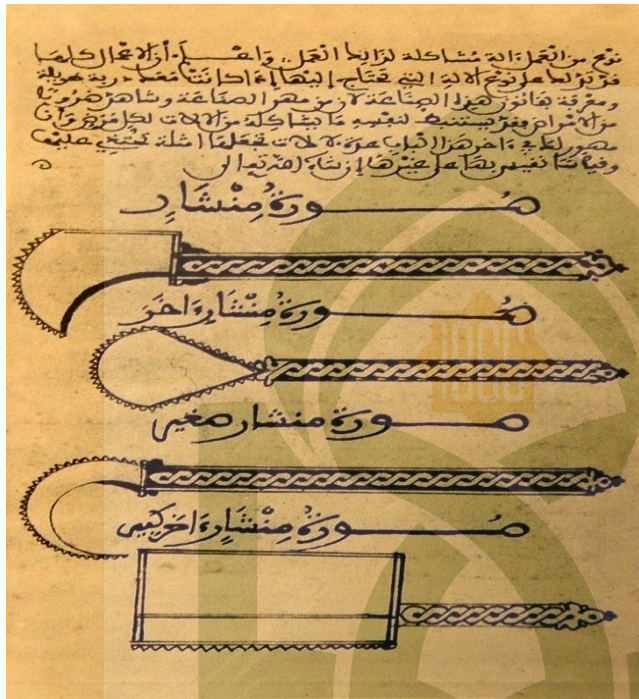 نوع من العمل ءالة مشاكلة لذالك العمل واعلم أن الاعمال كلها
قد تدلك على نوع الالة التي تحتاج إليها إذا كانت معك دربة طويلة
ومعرفة بقانون هذه الصناعة لان من مهر الصناعة وشاهد ضروبا
من الامراض فقد يستنبط لنفسه ما يشاكله من الالات لكل مرض وأنا
مصور لك في ءاخر هذا الباب عدة ءالات تجعلها امثلة تحتذي عليها
وقياسا تقيس بها على غيرها إن شاء الله تعالى
صُورَةُ مِنْشَارِ
صُورَةُ مِنْشَارٍ ءاخَرَ
صورة منشار صغير
صُورَةُ مِنْشَارٍ ءاخر كبير